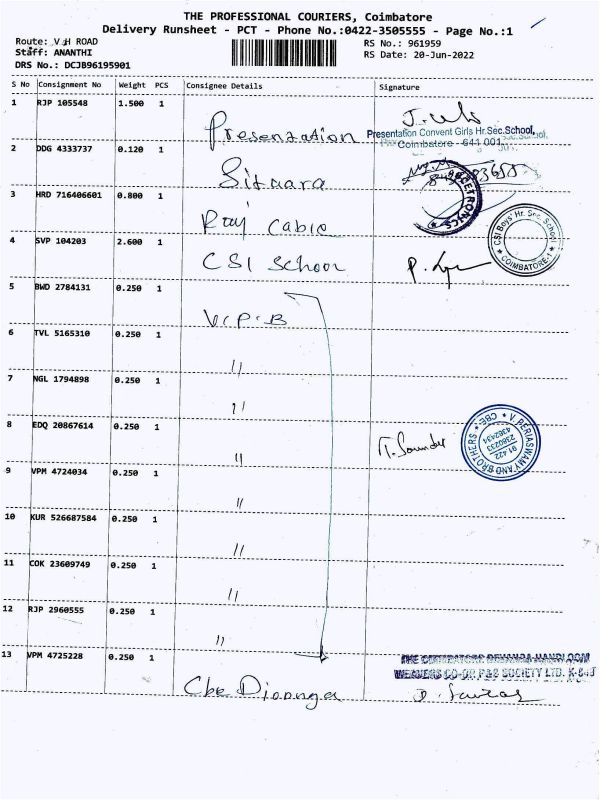 THE PROFESSIONAL COURIERS, Coimbatore
Delivery Runsheet - PCT - Phone No.:0422-3505555 - Page No.:1
Route: V H ROAD
Staff: ANANTHI
DRS No.: DCJB96195901
RS No.: 961959
RS Date: 20-Jun-2022
S No Consignment No Weight PCS Consignee Details Signature
1 RJP 105548 1.500 1 Presenzation
Presentation Convent Girls Hr.Sec.School,
Coimbatore - 641 001.
2 DDG 4333737 0.120 1 Sitaara
3 HRD 716406601 0.800 1 Raj Cable
CSI Boys' Hr. Sec. School
COIMBATORE-1
4 SVP 104203 2.600 1 CSI School
5 BWD 2784131 0.250 1 V.P.B
6 TVL 5165310 0.250 1 "
7 NGL 1794898 0.250 1 "
8 EDQ 20867614 0.250 1 "
V. PERIASWAMY AND BROTHERS * CBE *
91 422
2380233
4362434
9 VPM 4724034 0.250 1 "
10 KUR 526687584 0.250 1 "
11 COK 23609749 0.250 1 "
12 RJP 2960555 0.250 1 "
13 VPM 4725228 0.250 1 Cbe
THE COIMBATORE DEVANGA HANDLOOM
WEAVERS CO-OP. P&S SOCIETY LTD.